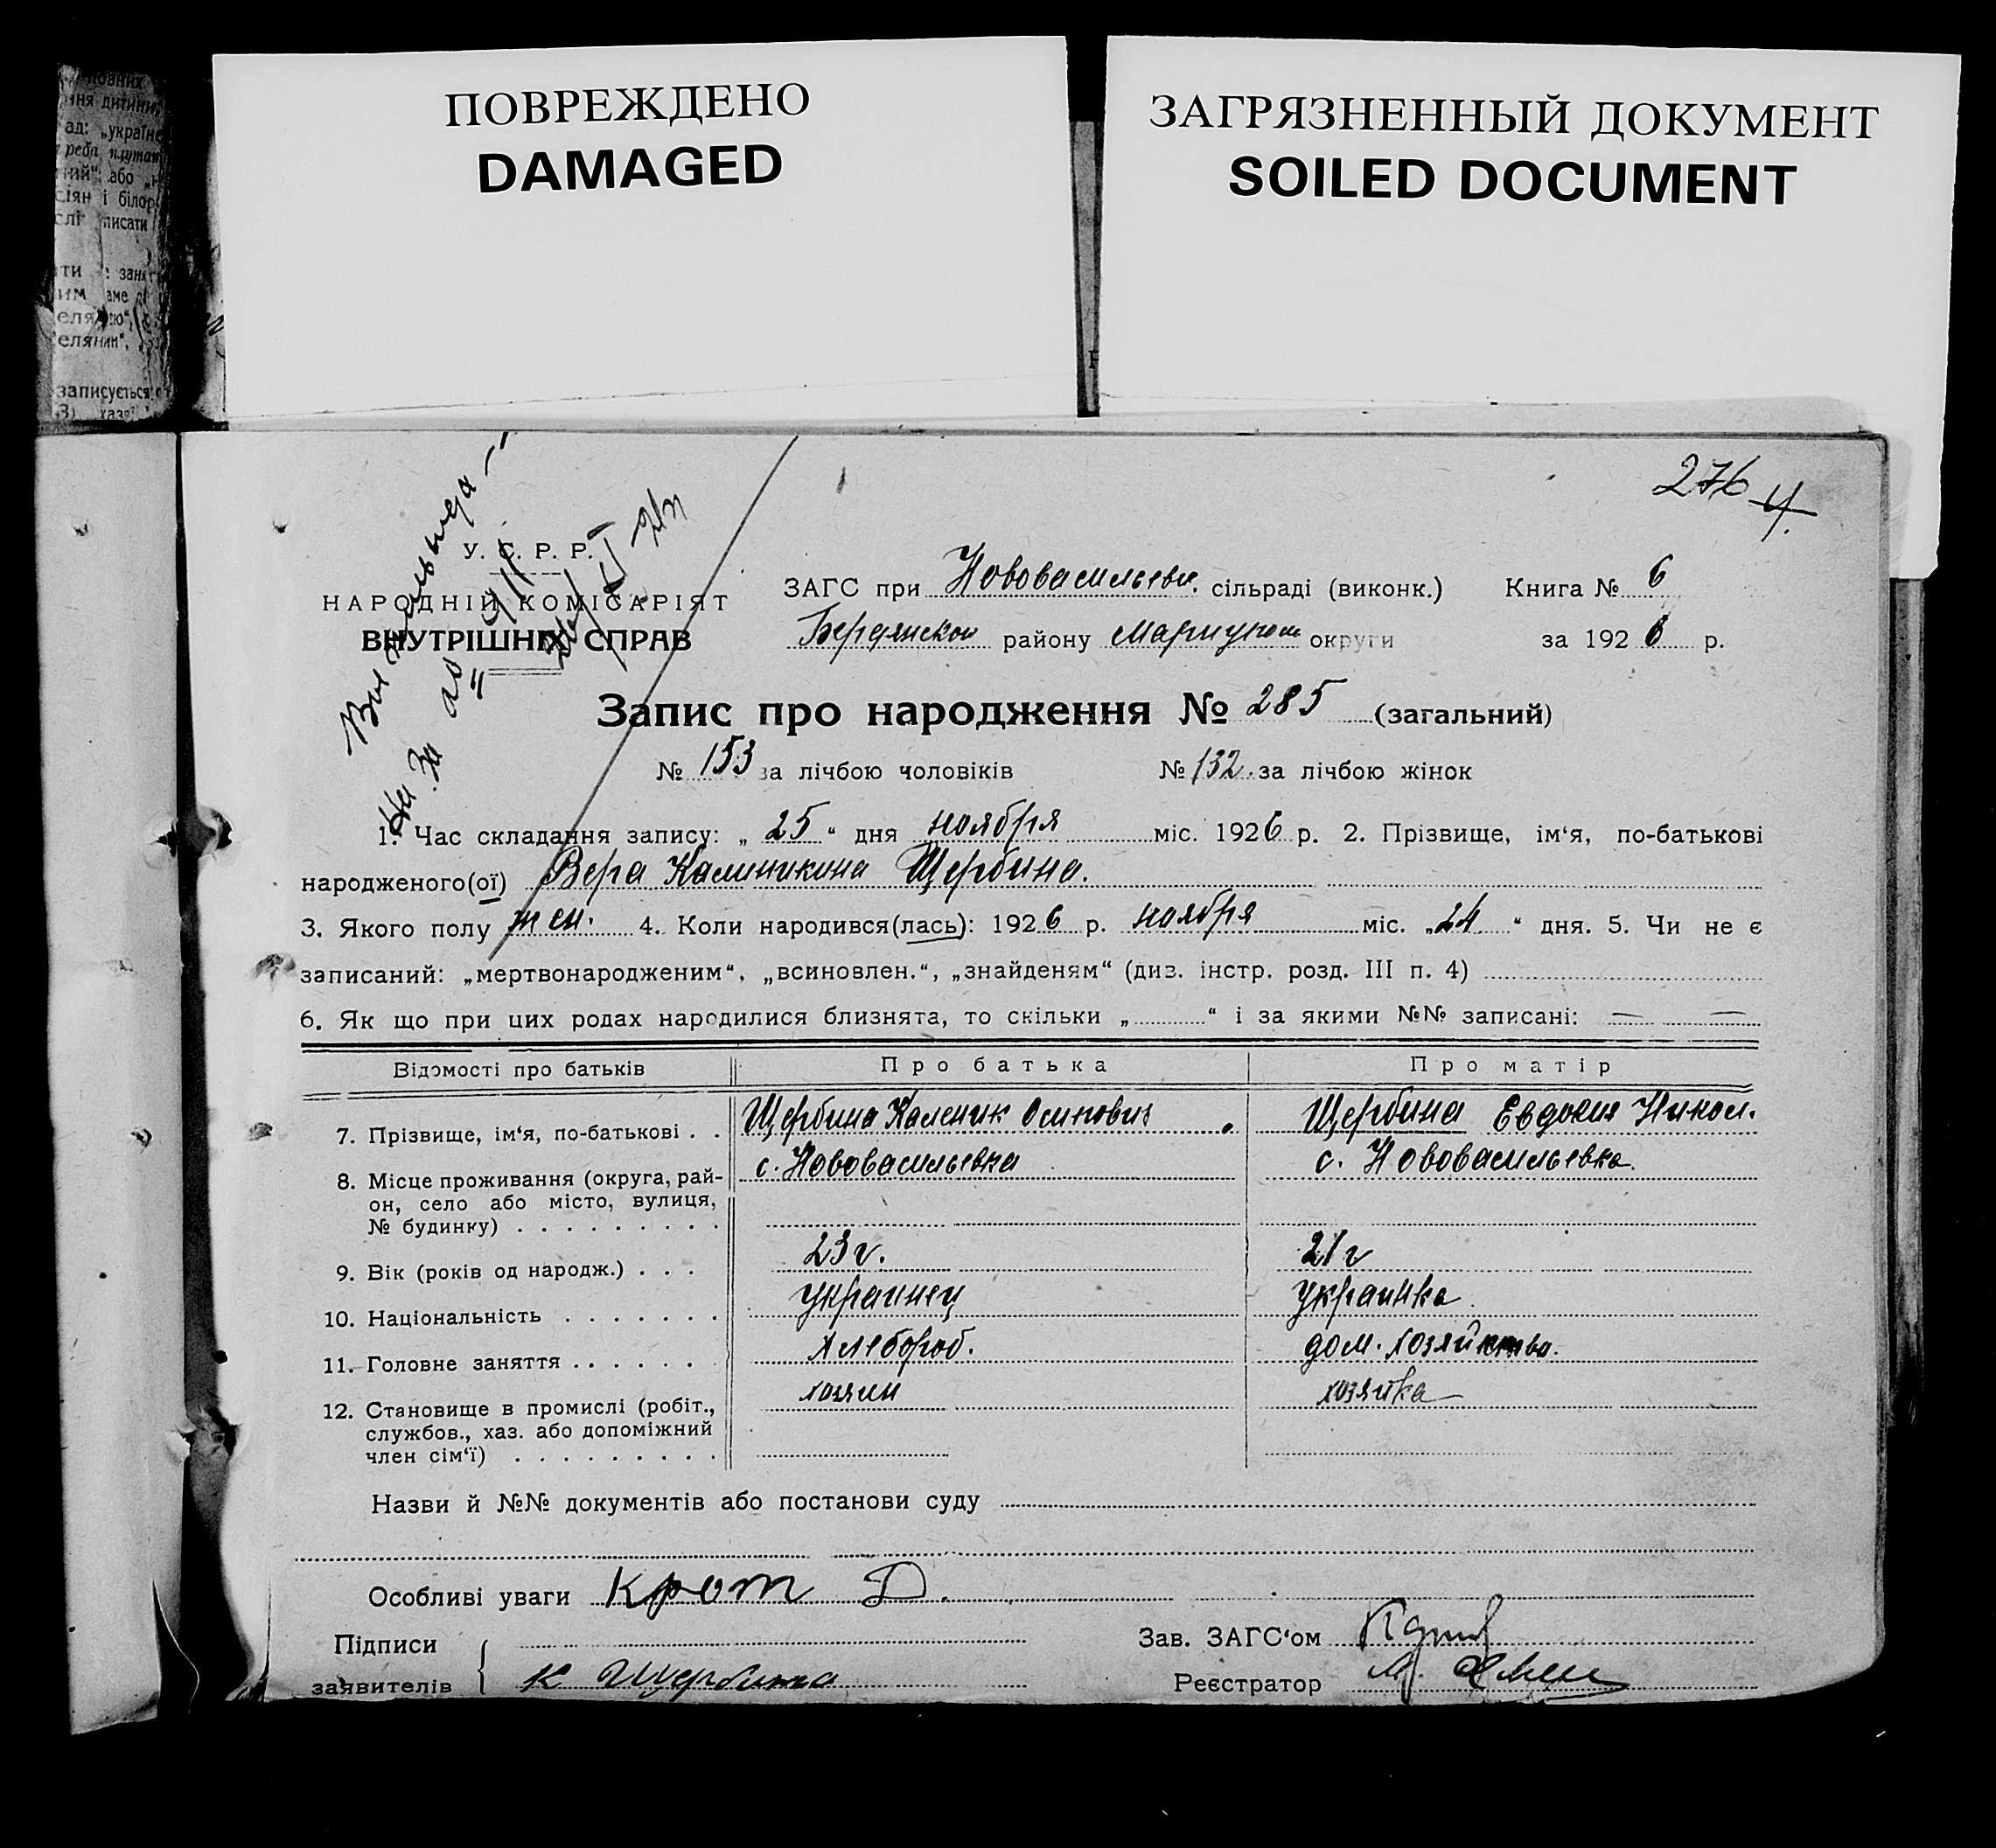 ПОВРЕЖДЕНО
DAMAGED
ЗАГРЯЗНЕННЫЙ ДОКУМЕНТ
SOILED DOCUMENT
ння дитини,
ад: „україне
реба плутат
ний" або „н
сіян і білор
слі писати
записується
276
У. С. Р. Р.
НАРОДНІЙ КОМІСАРІЯТ
ВНУТРІШНІХ СПРАВ
ЗАГС при Нововасильевк. сільраді (виконк.) Книга № 6
Бердянском району Мариупол округи за 1926 р.
Запис про народження № 285 (загальний)
№ 153 за лічбою чоловіків № 132. за лічбою жінок
1. Час складання запису: „ 25 " дня ноября міс. 1926 р. 2. Прізвище, ім'я, по-батькові
народженого(ої) Вера Калиникина Щербина.
3. Якого полу жен. 4. Коли народився(лась): 1926 р. ноября міс. „24 " дня. 5. Чи не є
записаний: „мертвонародженим", „всиновлен.", „знайденям" (див. інстр. розд. III п. 4)
6. Як що при цих родах народилися близнята, то скільки „ " і за якими №№ записані: — —
Відомості про батьків Про батька Про матір
7. Прізвище, ім'я, по-батькові . . Щербина Каленик Осипович . Щербина Евдокия Никол.
8. Місце проживання (округа, рай- с. Нововасильевка с. Нововасильевка.
он, село або місто, вулиця,
№ будинку) . . . . . . . . .
9. Вік (років од народж.) . . . 23 г. 21 г
10. Національність . . . . . . . украинец украинка
11. Головне заняття . . . . . . хлебороб. дом. хозяйство.
12. Становище в промислі (робіт., хозяин хозяйка
службов., хаз. або допоміжний
член сім'ї) . . . . . . . . .
Назви й №№ документів або постанови суду
Особливі уваги Крот Д.
Підписи Зав. ЗАГС'ом
заявителів К Щербина Реєстратор